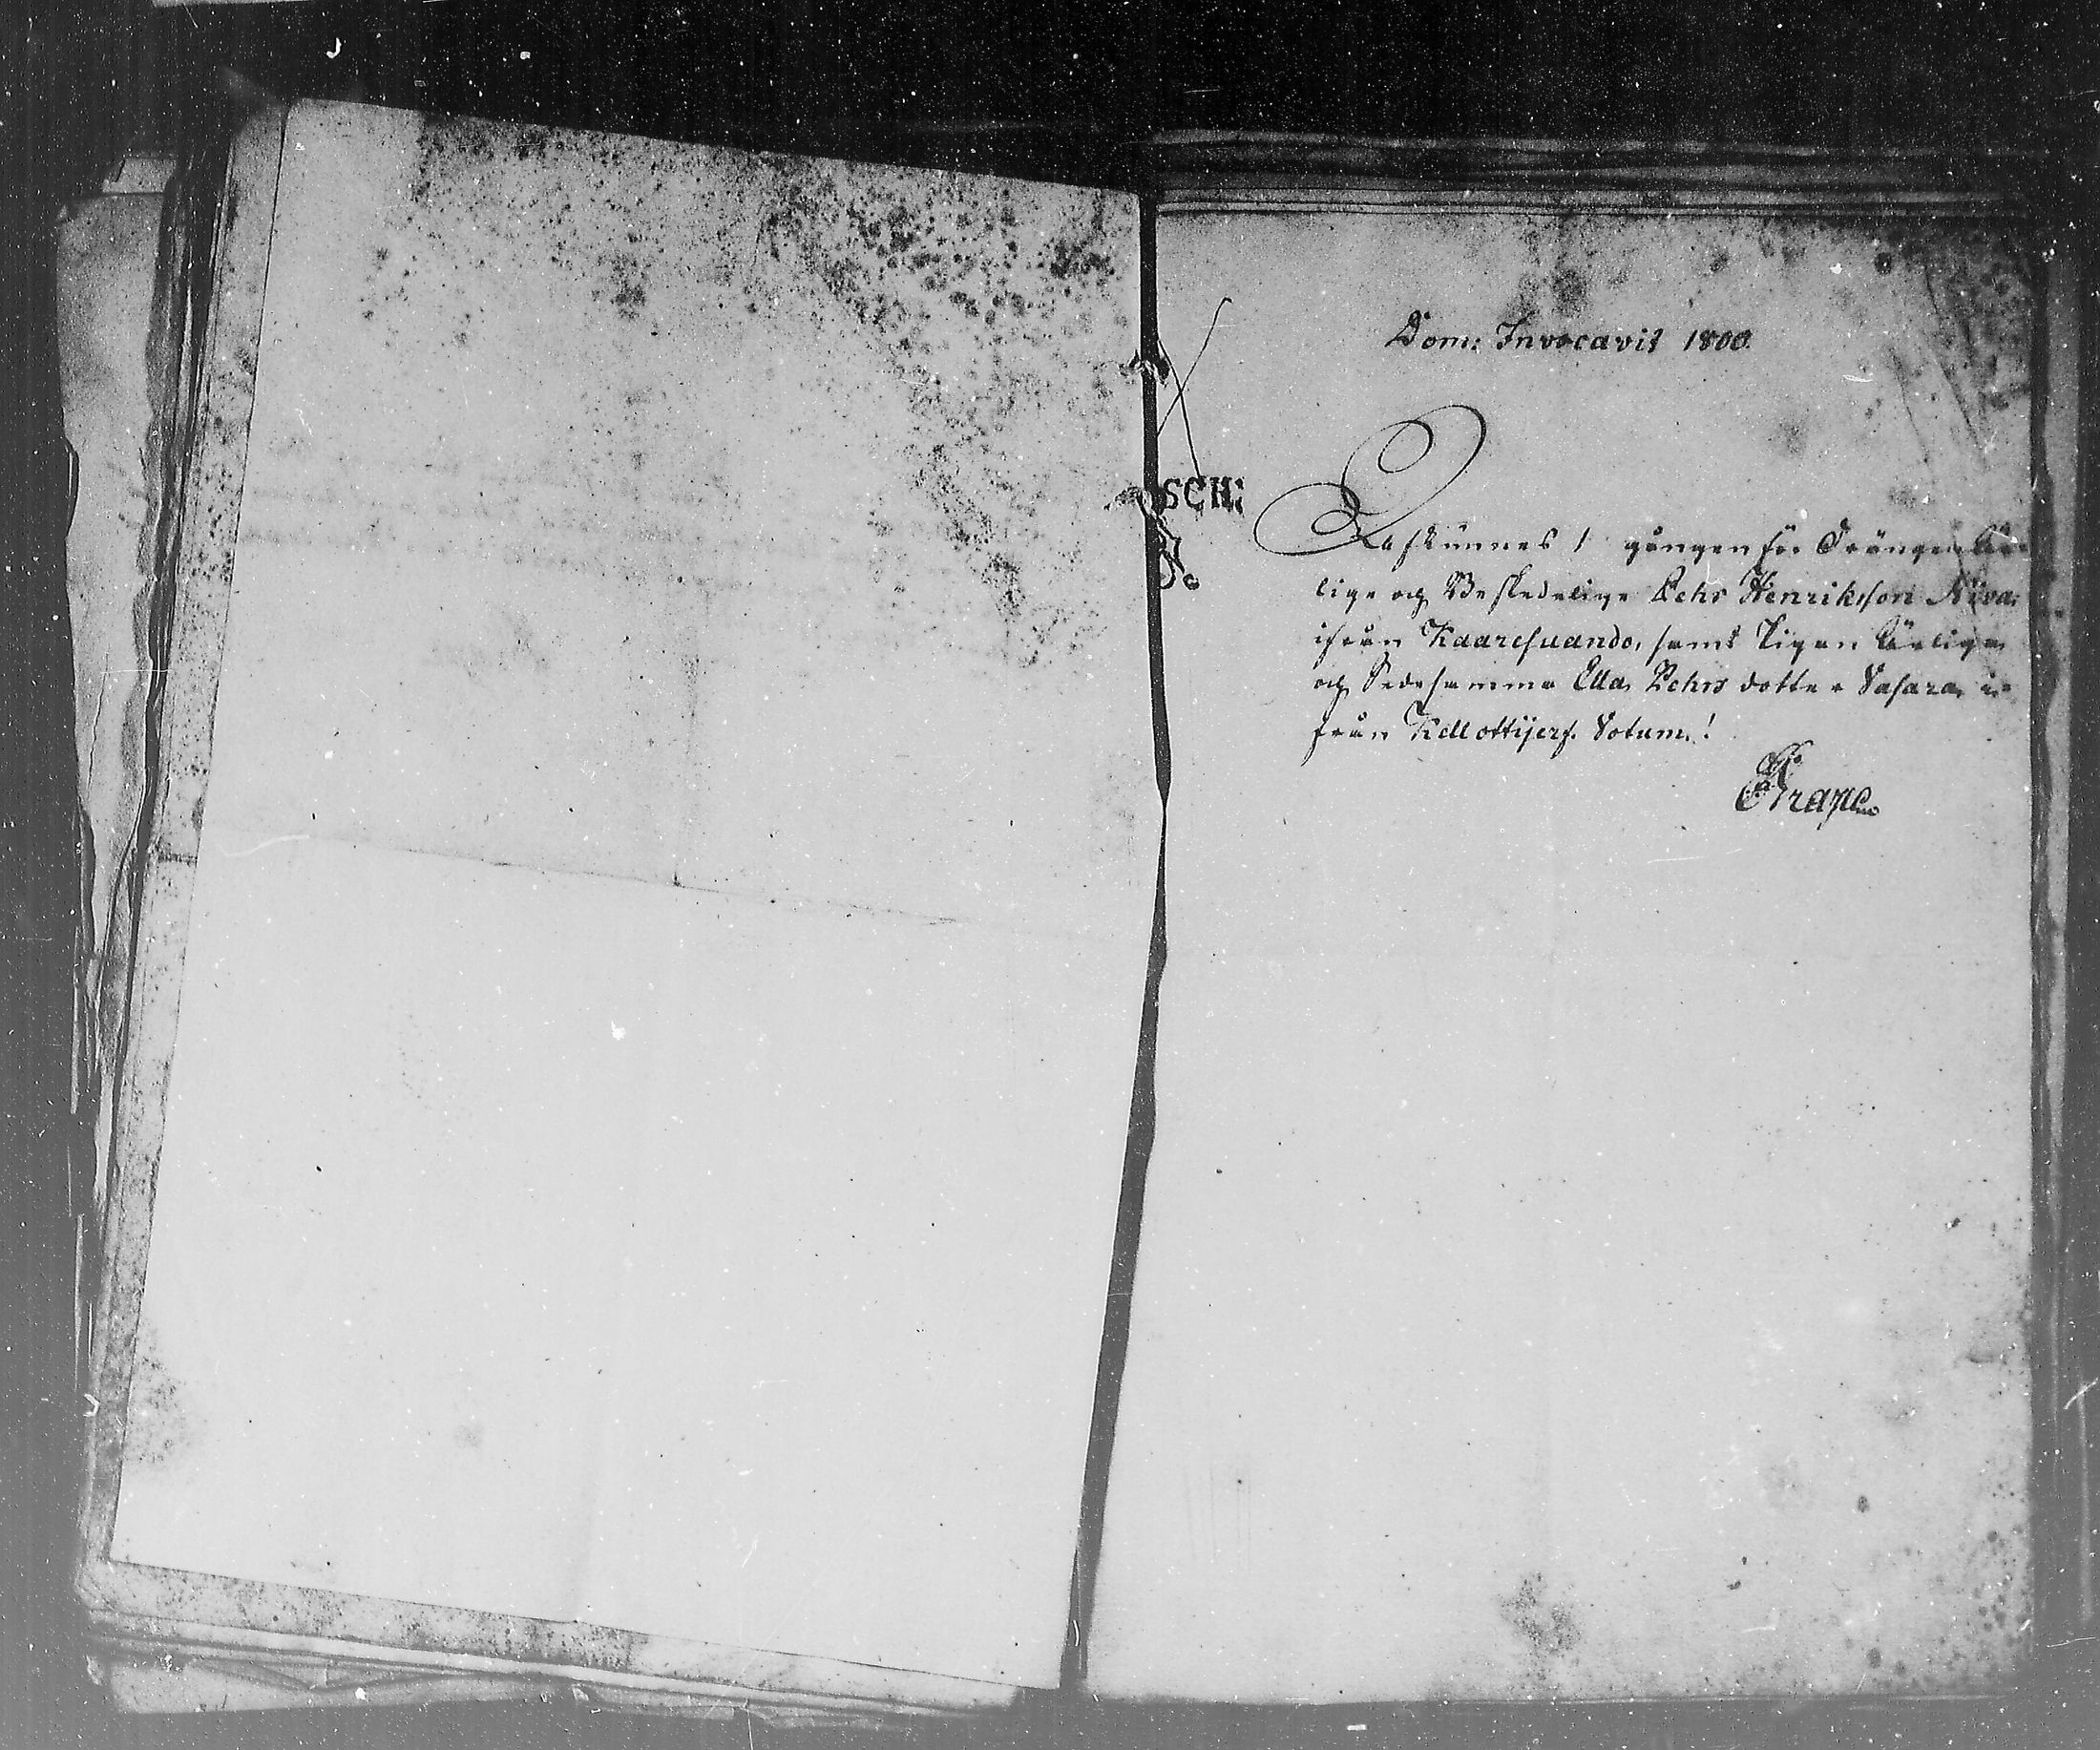 Dom: Invocavit 1800
SCH:
Afkunnes 1 gången för Drängen Är-
lige och Beskedelige Pehr Henriksson Niva
ifrån Kaaresuando, samt Pigan ärliga
och Sedesamma Ella Pehrs dotter Vasara i-
från Kellottijerf. Votum!